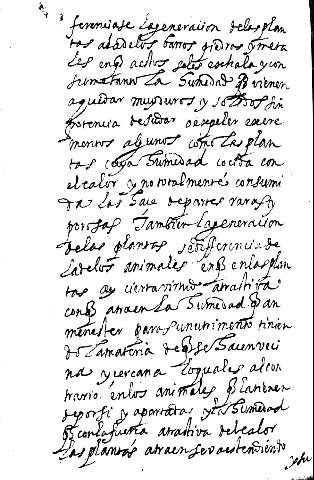 ferenciase la generacion de las plan
tas ala de los
piedras y meta
les en q̃ a estos se les exhala y con
sume tanto la humedad q̃ vienen
a quedar muy duros y solidos sin
potencia de sudar o expeler excre
mentos algunos como las plan
tas cuya humedad cocida con
el calor y no totalmente consumi
da las hace de partes raras y
porosas Tambien la generacion
de las plantas se diferencia de
la de los animales en q̃ en las plan
tas ay cierta virtud atractiva
con q̃ atraen la humedad q̃ an
menester para su nutrimento tinien
do la materia de q̃ se hacen veci
na y cercana lo qual es al con
trario en los animales q̃ la tienen
de por si y apartada y la humedad
q̃ con la fuerza atractiva del calor
las plantas atraen se va estendiendo